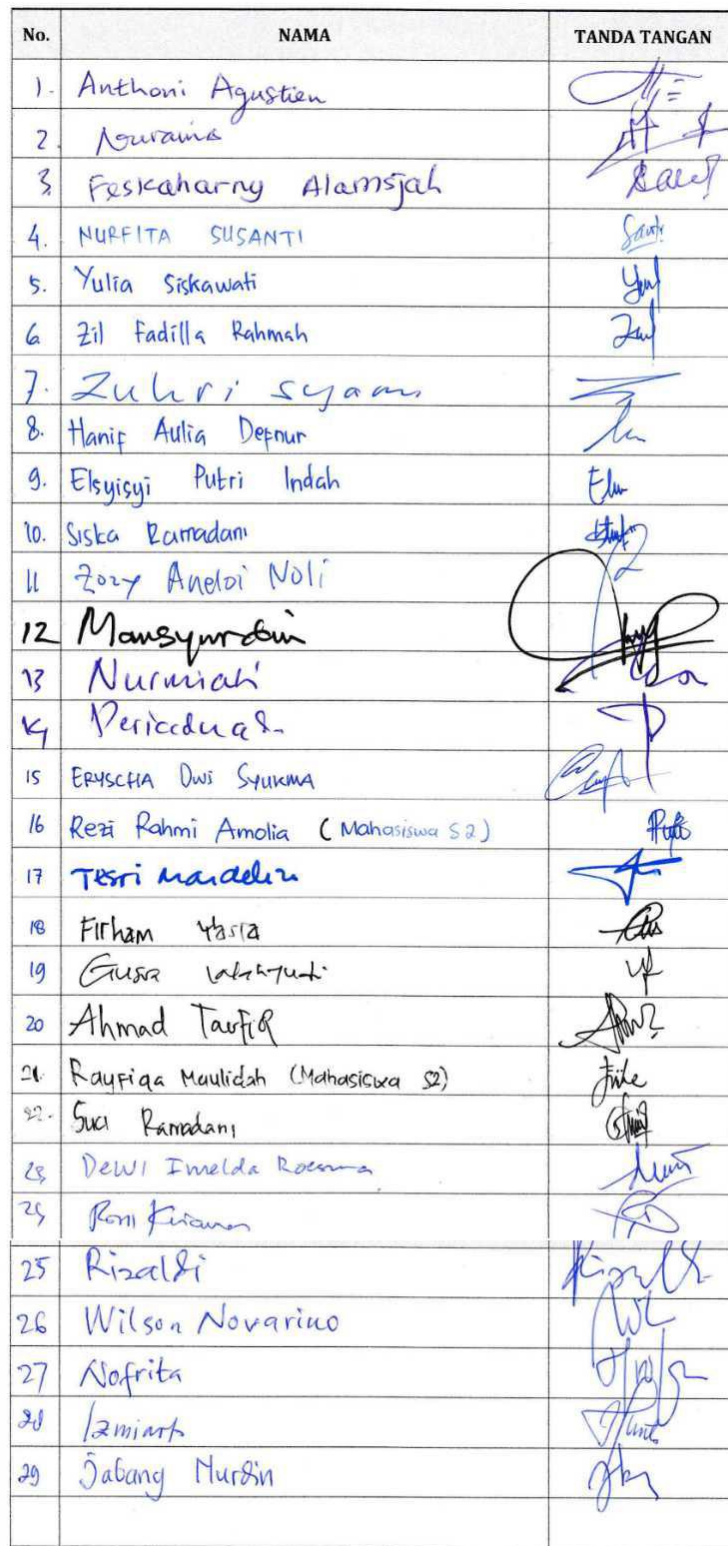 No. NAMA TANDA TANGAN
1. Anthoni Agustien
2. Nuraina
3 Feskaharny Alamsjah
4. NURFITA SUSANTI
5. Yulia Siskawati
6 Zil Fadilla Rahmah
7. Zuhri Syam
8. Hanif Aulia Defnur
9. Elsyisyi Putri Indah
10. Siska Ramadani
11 Zozy Aneloi Noli
12 Mansyurdin
13 Nurmiati
14
15 ERYSCHA Dwi SYUKMA
16 Rezi Rahmi Amolia (Mahasiswa S2)
17 Tesri Maideliza
18 Firham Yasra
19 Gusra
20 Ahmad Taufiq
21. Rayfiqa Maulidah (Mahasiswa S2)
22. Suci Ramadani
23 Dewi Imelda Roesma
25 Rizaldi
26 Wilson Novarino
27 Nofrita
28 Izmiarti
29 Jabang Nurdin